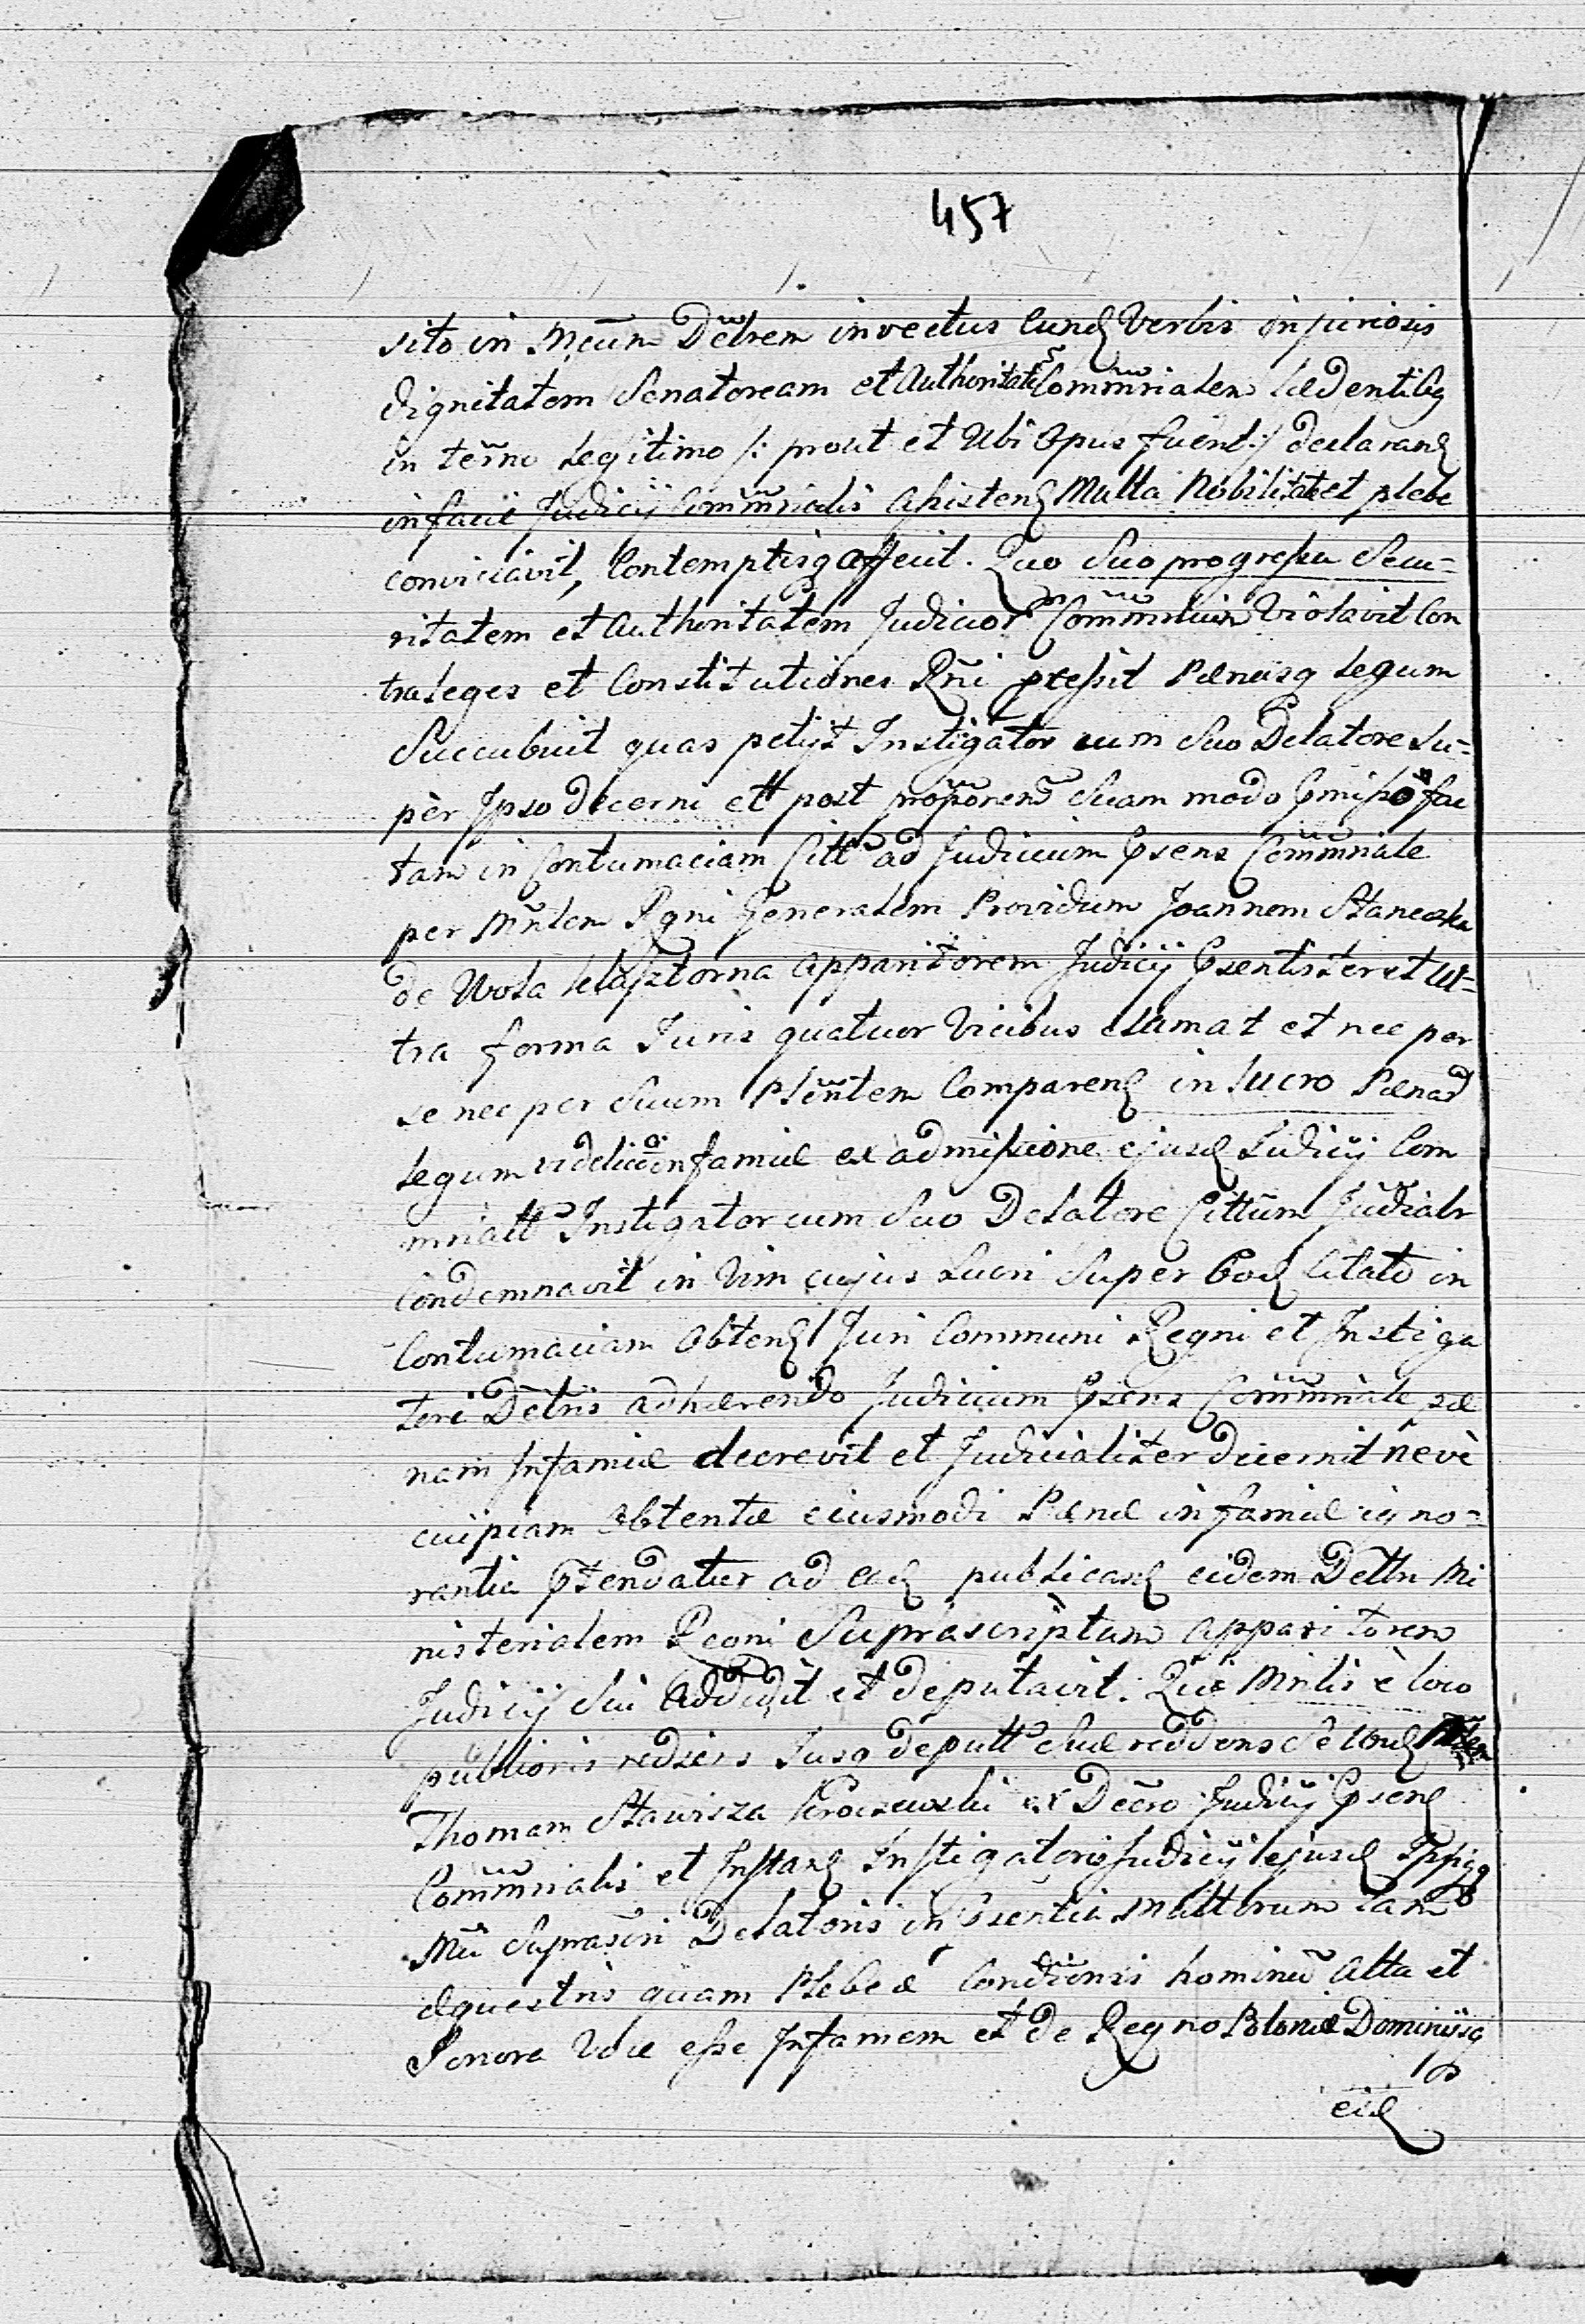 457
sito in Mcūm Dēlrem invectus eund Verbis injuriosis
dignitatem Senatoream et Authoritatē Com̄m̄rialem lædentibq
in terñno legitimo /: prout et Ubi Opus fuerit :/ declarand
in facie Judicij Com̄m̄rialis Assistend Multa Nobilitate et plebe
conviciavit, Contemptisq affecit. Quo Suo progressu Secu=
ritatem et Authoritatem Judicior Com̄m̄rium Violavit Con
tra leges et Constitutiones Rñi gressit Pænasq legum
Succubuit quas petijt Instigator cum Suo Delatore Su=
pèr Ipso decerni et post propōnem Suam modo pmisso fac
tam in Contumaciam Citti ad Judicium Psens Com̄m̄riale
per Mñlem Rgni Generalem Providum Joannem Staneczka
de Wola Klasztorna apparitorem Judicij Psentis ter et ul=
tra forma Juris quatuor Vicibus clamat et nec per
se nec per Suum Plēñtem Comparend in lucro Pænar
legum videlicet infamiæ ex admissione ejusd Judicij Com
mriali Instigator cum Suo Delatore Cittūm Judiciali
Condemnavit in Vim cujus Lucri Super Eod Citato in
Contumaciam Obtend Juri Communi Regni et Instiga
tori Dēlris adhærendo Judicium Psens Com̄m̄riale pæ
nam Infamiæ decrevit et Judicialiter decernit nevè
cuipiam obtentæ eiusmodi Pænæ infamiæ igno=
rantia Ptendatur ad ead publicand eidem Dettn Mi
nisterialem Regni Suprascriptum apparitorem
Judicij Sui addidit et deputavit. Qui Mnlis è loco
publicoris rediens Suaq deputt Suæ reddens Se
Thomam Stawisza ex Decro Judicij Psend
Com̄m̄rialis et Instand Instigatoris Judicij ejusd
Suprascri Delatoris in Psentia Multtorum tam
æquestris quam Plebeæ Condiīonis hominū Alta et
Sonora Voce esse Infamem et de Regno Poloniæ Dominijsq
eid